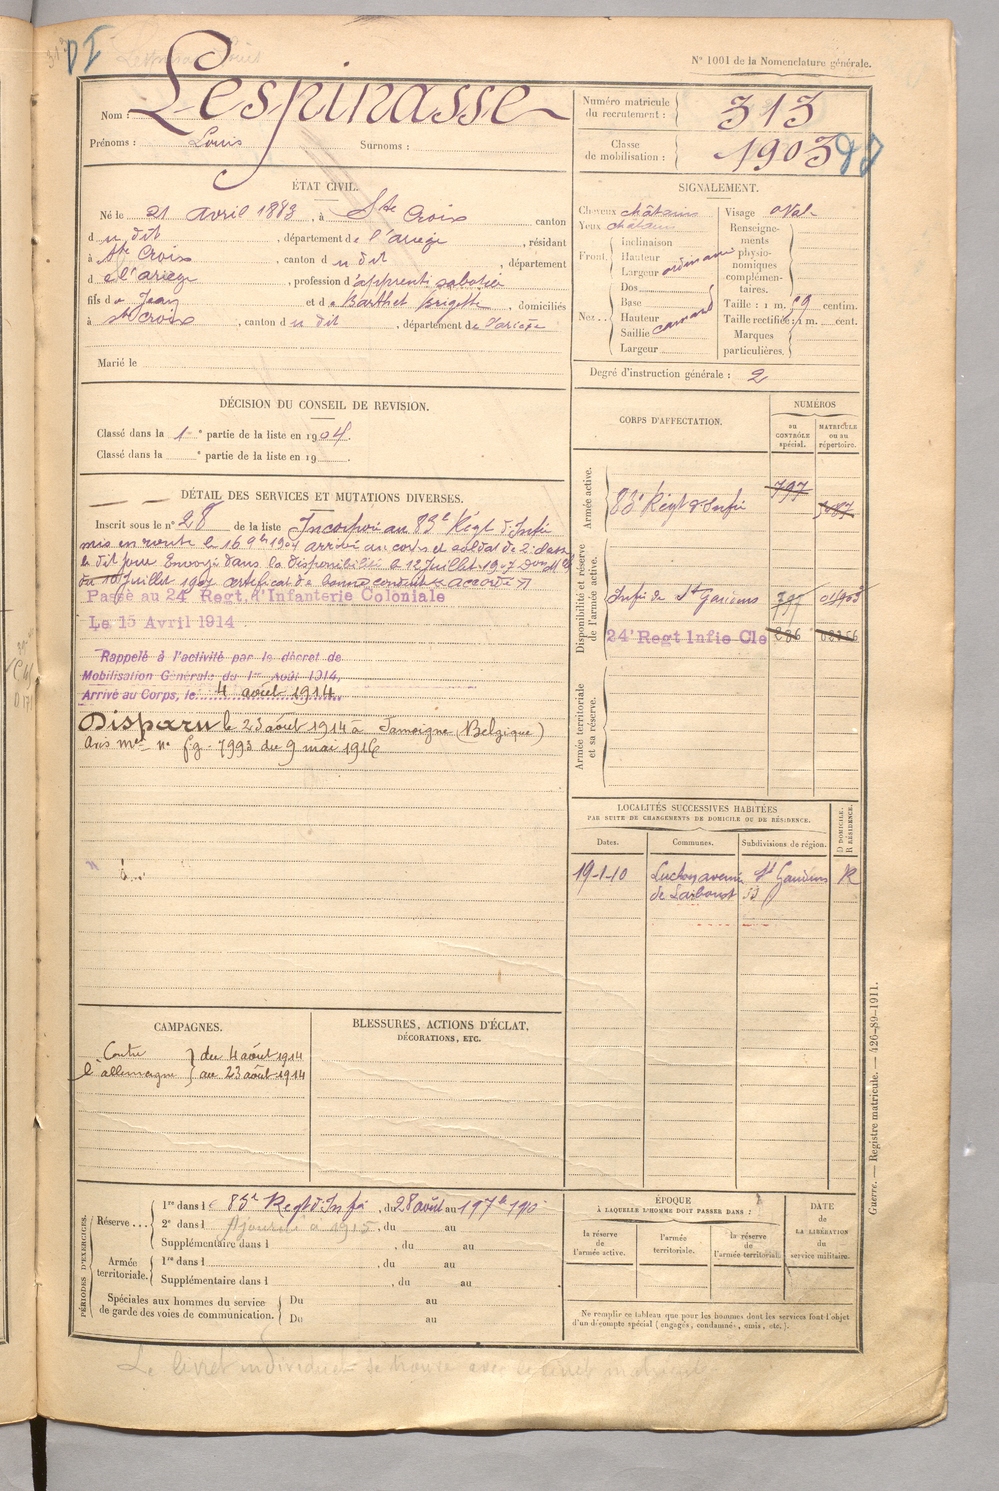 DI
N° 1001 de la Nomenclature générale.
Nom : Lespinasse
Prénoms : Louis Surnoms :
Numéro matricule du recrutement : 313
Classe de mobilisation : 1903
ÉTAT CIVIL.
Né le 21 avril 1883, à Ste Croix canton
d u dit, département de l'ariège, résidant
à Ste Croix, canton d u dit, département
d e l'ariège, profession d'apprenti sabotier
fils de Jean et de Barthet Brigitte, domiciliés
à Ste Croix, canton d u dit, département de l'ariège
Marié le
SIGNALEMENT.
Cheveux châtains
Yeux châtains
Front. Inclinaison
Hauteur
Largeur ordinaire
Nez.. Dos
Base
Hauteur
Saillie camard
Largeur
Visage oval
Renseignements physionomiques complémentaires.
Taille : 1 m. 59 centim.
Taille rectifiée : 1 m. cent.
Marques particulières.
Degré d'instruction générale : 2
DÉCISION DU CONSEIL DE REVISION.
Classé dans la 1e partie de la liste en 1904.
Classé dans la e partie de la liste en 19 .
CORPS D'AFFECTATION.
NUMÉROS
au CONTRÔLE spécial.
MATRICULE ou au répertoire.
Armée active.
83e Régt d'Infie 797
Disponibilité et réserve de l'armée active.
Infie de St Gaudens
24e Regt Infie Cle
Armée territoriale et sa réserve.
DÉTAIL DES SERVICES ET MUTATIONS DIVERSES.
Inscrit sous le n° 28 de la liste Incorporé au 83e Régt d'Infie
mis en route le 16 9bre 1904 arrivé au corps et soldat de 2e classe
le dit jour Envoyé dans la disponibilité le 12 Juillet 1907
du 10 Juillet 1907 certificat de bonne conduite accordé
Passé au 24e Regt. d'Infanterie Coloniale
Le 15 Avril 1914
Rappelé à l'activité par le décret de
Mobilisation Générale du 1er Août 1914,
Arrivé au Corps, le 4 août 1914
Disparu le 23 août 1914 à Jamoigne (Belgique)
Avis mel n° fg. 7993 du 9 mai 1916
LOCALITÉS SUCCESSIVES HABITÉES
PAR SUITE DE CHANGEMENTS DE DOMICILE OU DE RÉSIDENCE.
Dates. Communes. Subdivisions de région. D DOMICILE. R RÉSIDENCE.
19-1-10 Luchon avenue St Gaudens R
de Larboust
CAMPAGNES.
Contre l'allemagne du 4 août 1914
au 23 août 1914
BLESSURES, ACTIONS D'ÉCLAT,
DÉCORATIONS, ETC.
PÉRIODES D'EXERCICES.
Réserve... 1re dans l e 83e Regt d'Infie, du 28 août au
2e dans l ajourné à 1915, du au
Supplémentaire dans l , du au
Armée territoriale. 1re dans l , du au
Supplémentaire dans l , du au
Spéciales aux hommes du service de garde des voies de communication. Du au
Du au
ÉPOQUE
À LAQUELLE L'HOMME DOIT PASSER DANS :
la réserve de l'armée active.
l'armée territoriale.
la réserve de l'armée territoriale.
DATE de LA LIBÉRATION du service militaire.
Ne remplir ce tableau que pour les hommes dont les services font l'objet
d'un décompte spécial (engagés, condamnés, omis, etc.).
Guerre. — Registre matricule. — 426-89-1911.
Le livret individuel se trouve avec le livret matricule